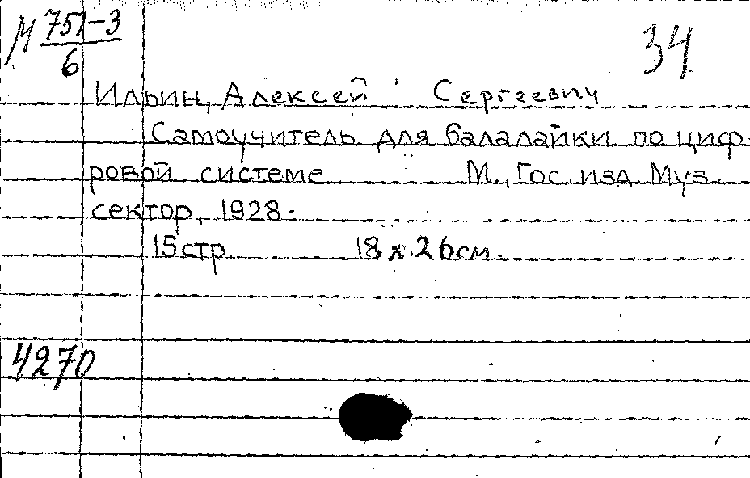 М 751-3
6
34
Ильин, Алексей Сергеевич
Самоучитель для балалайки по циф-
ровой системе М., Гос. изд. Муз.
сектор, 1928.
15 стр. 18 x 26 см.
4270